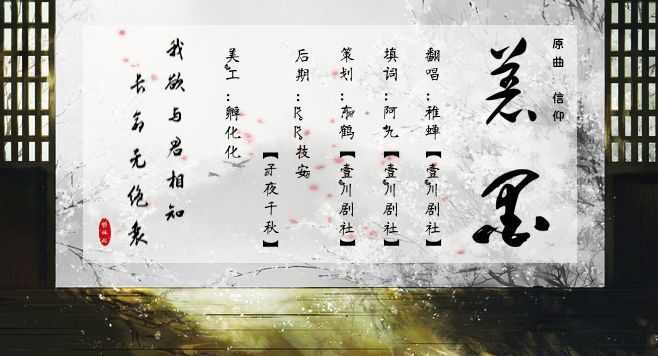 原曲:信仰
墨
翻唱:稚蝉【壹川剧社】
填词:阿九【壹川剧社】
策划:东鹤【壹川剧社】
后期:技安
美工:孵化化【子夜千秋】
我欲与君相知
长命无绝衰